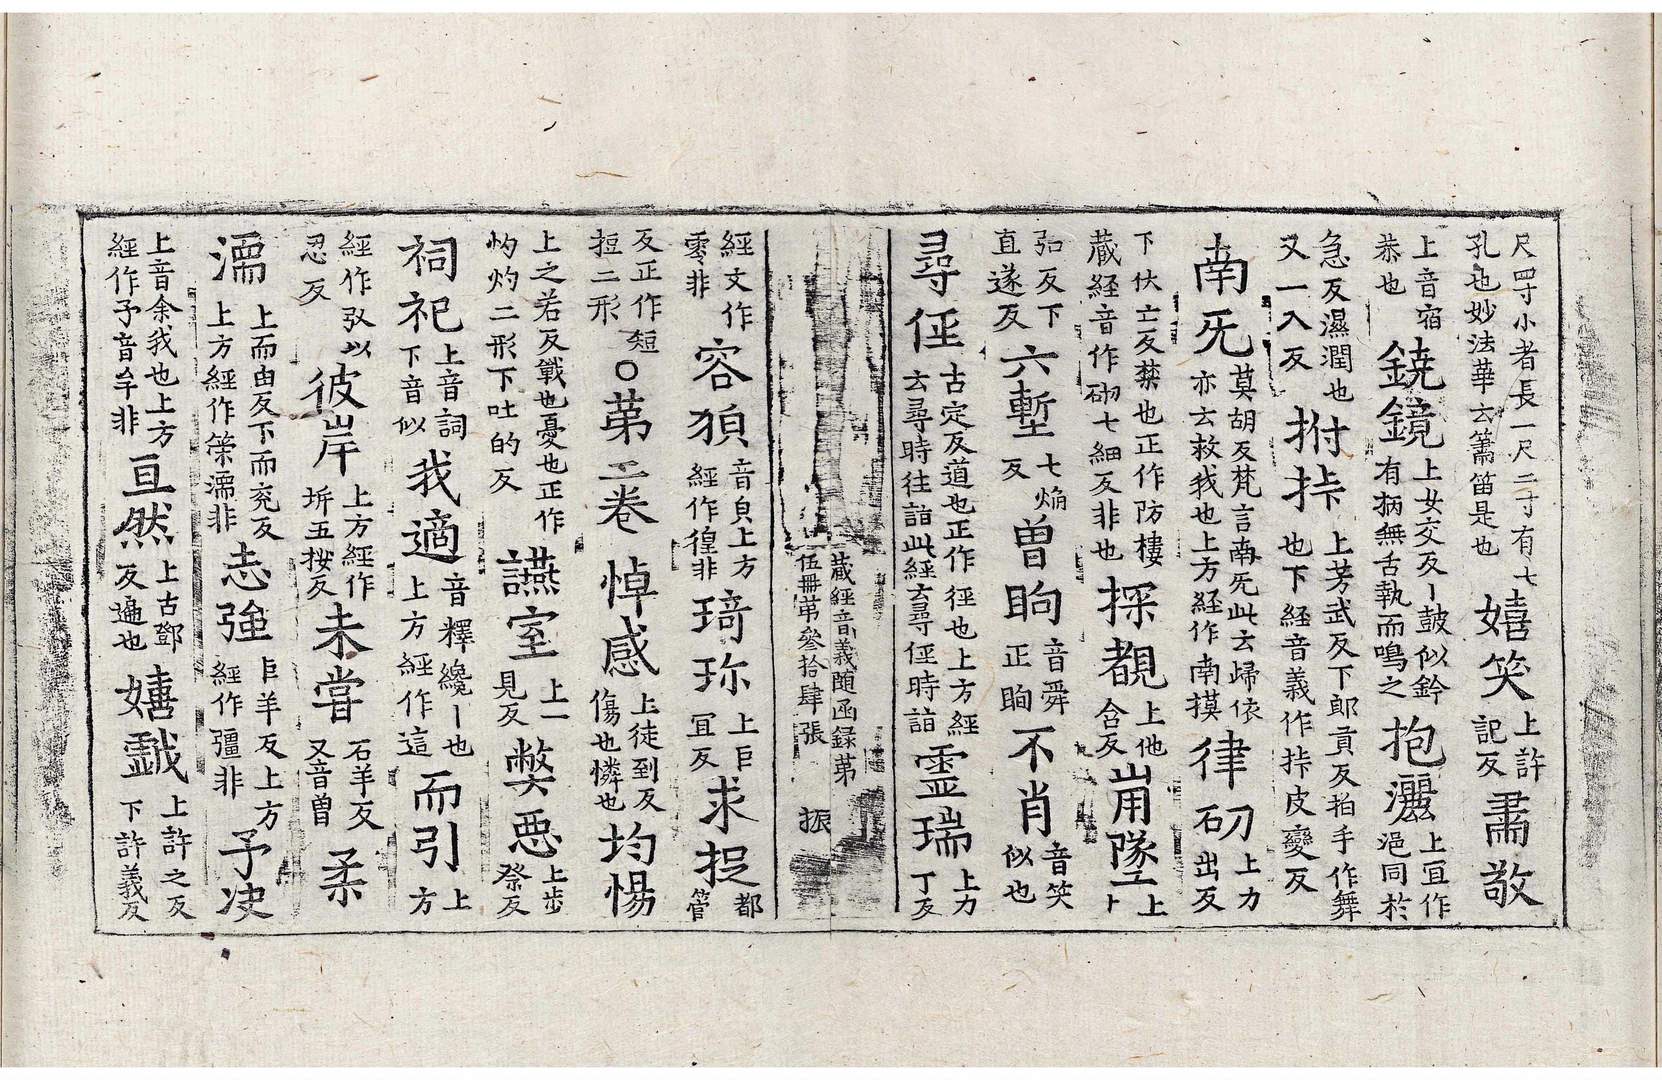 尺四寸小者長一尺二寸有七孔也妙法華云簫笛是也嬉笑上許記反肅敬
上音宿恭也鐃鏡上女交反丨鼓似鈴有柄無舌執而鳴之抱灑上宜作浥同於
急反濕潤也又一入反拊抃上芳武反下郎貢反拍手作舞也下經音義作抃皮變反
南旡莫胡反梵言南旡此云歸依亦云救我也上方経作南摸律砌上力出反
下伏亡反禁也正作防樓蔵経音作砌七細反非也採覩上他含反崩墜上卜
弘反下直遂反六塹七焔反曽眴音舜正眴不肖音笑似也
尋侄古定反道也正作徑也上方經云尋時徃詣此經云尋侄時詣霊瑞上力丁反
蔵經音義随函録苐伍冊苐叁拾肆張 振
經文作零非容㒵音皃上方經作徨非琦珎上巨冝反求捉都管
反正作短 二形○苐二卷悼感上徒到反傷也憐也均惕
上之若反戰也憂也正作灼灼二形下吐的反讌室上一見反弊惡上步祭反
祠祀上音詞下音似我適音釋纔丨也上方經作這而引上方
經作弞以忍反彼岸上方經作圻五桉反未甞石羊反又音曽柔
濡上而由反下而兖反上方經作 濡非志強巨羊反上方經作彊非予决
上音余我也上方經作予音 非亘然上古鄧反遍也嬉戱上許之反下許義反